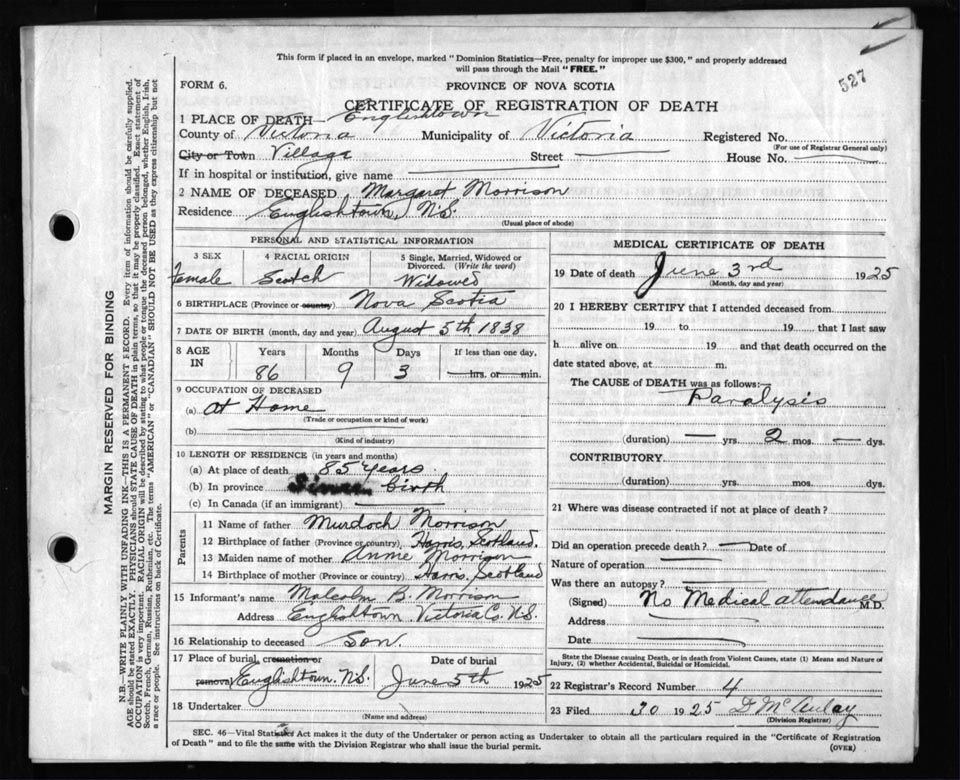 This form if placed in an envelope, marked "Dominion Statistics—Free, penalty for improper use $300," and properly addressed
will pass through the Mail "FREE."
527
FORM 6.
PROVINCE OF NOVA SCOTIA
CERTIFICATE OF REGISTRATION OF DEATH
1 PLACE OF DEATH— Englishtown
County of Victoria Municipality of Victoria Registered No.
(For use of Registrar General only)
City or Town Village Street House No.
If in hospital or institution, give name
2 NAME OF DECEASED Margaret Morrison
Residence Englishtown, N.S.
(Usual place of abode)
PERSONAL AND STATISTICAL INFORMATION
3 SEX 4 RACIAL ORIGIN 5 Single, Married, Widowed or
Divorced. (Write the word)
Female Scotch Widowed
6 BIRTHPLACE (Province or country) Nova Scotia
7 DATE OF BIRTH (month, day and year) August 5th 1838
8 AGE IN Years Months Days If less than one day,
86 9 3 hrs. or min.
9 OCCUPATION OF DECEASED
(a) At Home
(Trade or occupation or kind of work)
(b)
(Kind of industry)
10 LENGTH OF RESIDENCE (in years and months)
(a) At place of death 85 years
(b) In province Since birth
(c) In Canada (if an immigrant)
Parents
11 Name of father Murdoch Morrison
12 Birthplace of father (Province or country) Harris, Scotland.
13 Maiden name of mother Annie Morrison
14 Birthplace of mother (Province or country) Harris, Scotland
15 Informant's name Malcolm B. Morrison
Address Englishtown Victoria Co. N.S.
16 Relationship to deceased Son.
17 Place of burial, cremation or Date of burial
removal Englishtown. N.S. June 5th 1925
18 Undertaker
(Name and address)
MEDICAL CERTIFICATE OF DEATH
19 Date of death June 3rd 1925
(Month, day and year)
20 I HEREBY CERTIFY that I attended deceased from
19 to 19 that I last saw
h alive on 19 and that death occurred on the
date stated above, at m.
The CAUSE of DEATH was as follows:
Paralysis
(duration) — yrs. 2 mos. — dys.
CONTRIBUTORY
(duration) yrs. mos. dys.
21 Where was disease contracted if not at place of death?
Did an operation precede death? — Date of
Nature of operation
Was there an autopsy?
(Signed) No Medical attendance M.D.
Address
Date
State the Disease causing Death, or in death from Violent Causes, state (1) Means and Nature of
Injury, (2) whether Accidental, Suicidal or Homicidal.
22 Registrar's Record Number 4
23 Filed 30 1925 D McAulay
(Division Registrar)
SEC. 46—Vital Statistics Act makes it the duty of the Undertaker or person acting as Undertaker to obtain all the particulars required in the "Certificate of Registration
of Death" and to file the same with the Division Registrar who shall issue the burial permit.
(OVER)
MARGIN RESERVED FOR BINDING
N.B.—WRITE PLAINLY WITH UNFADING INK—THIS IS A PERMANENT RECORD. Every item of information should be carefully supplied.
AGE should be stated EXACTLY. PHYSICIANS should STATE CAUSE OF DEATH in plain terms, so that it may be properly classified. Exact statement of
OCCUPATION is very important. RACIAL ORIGIN will be described by stating to what people or tongue the deceased person belonged, whether English, Irish,
Scotch, French, German, Russian, Ruthenian, etc. The terms "AMERICAN" or "CANADIAN" SHOULD NOT BE USED as they express citizenship but not
a race or people. See instructions on back of Certificate.